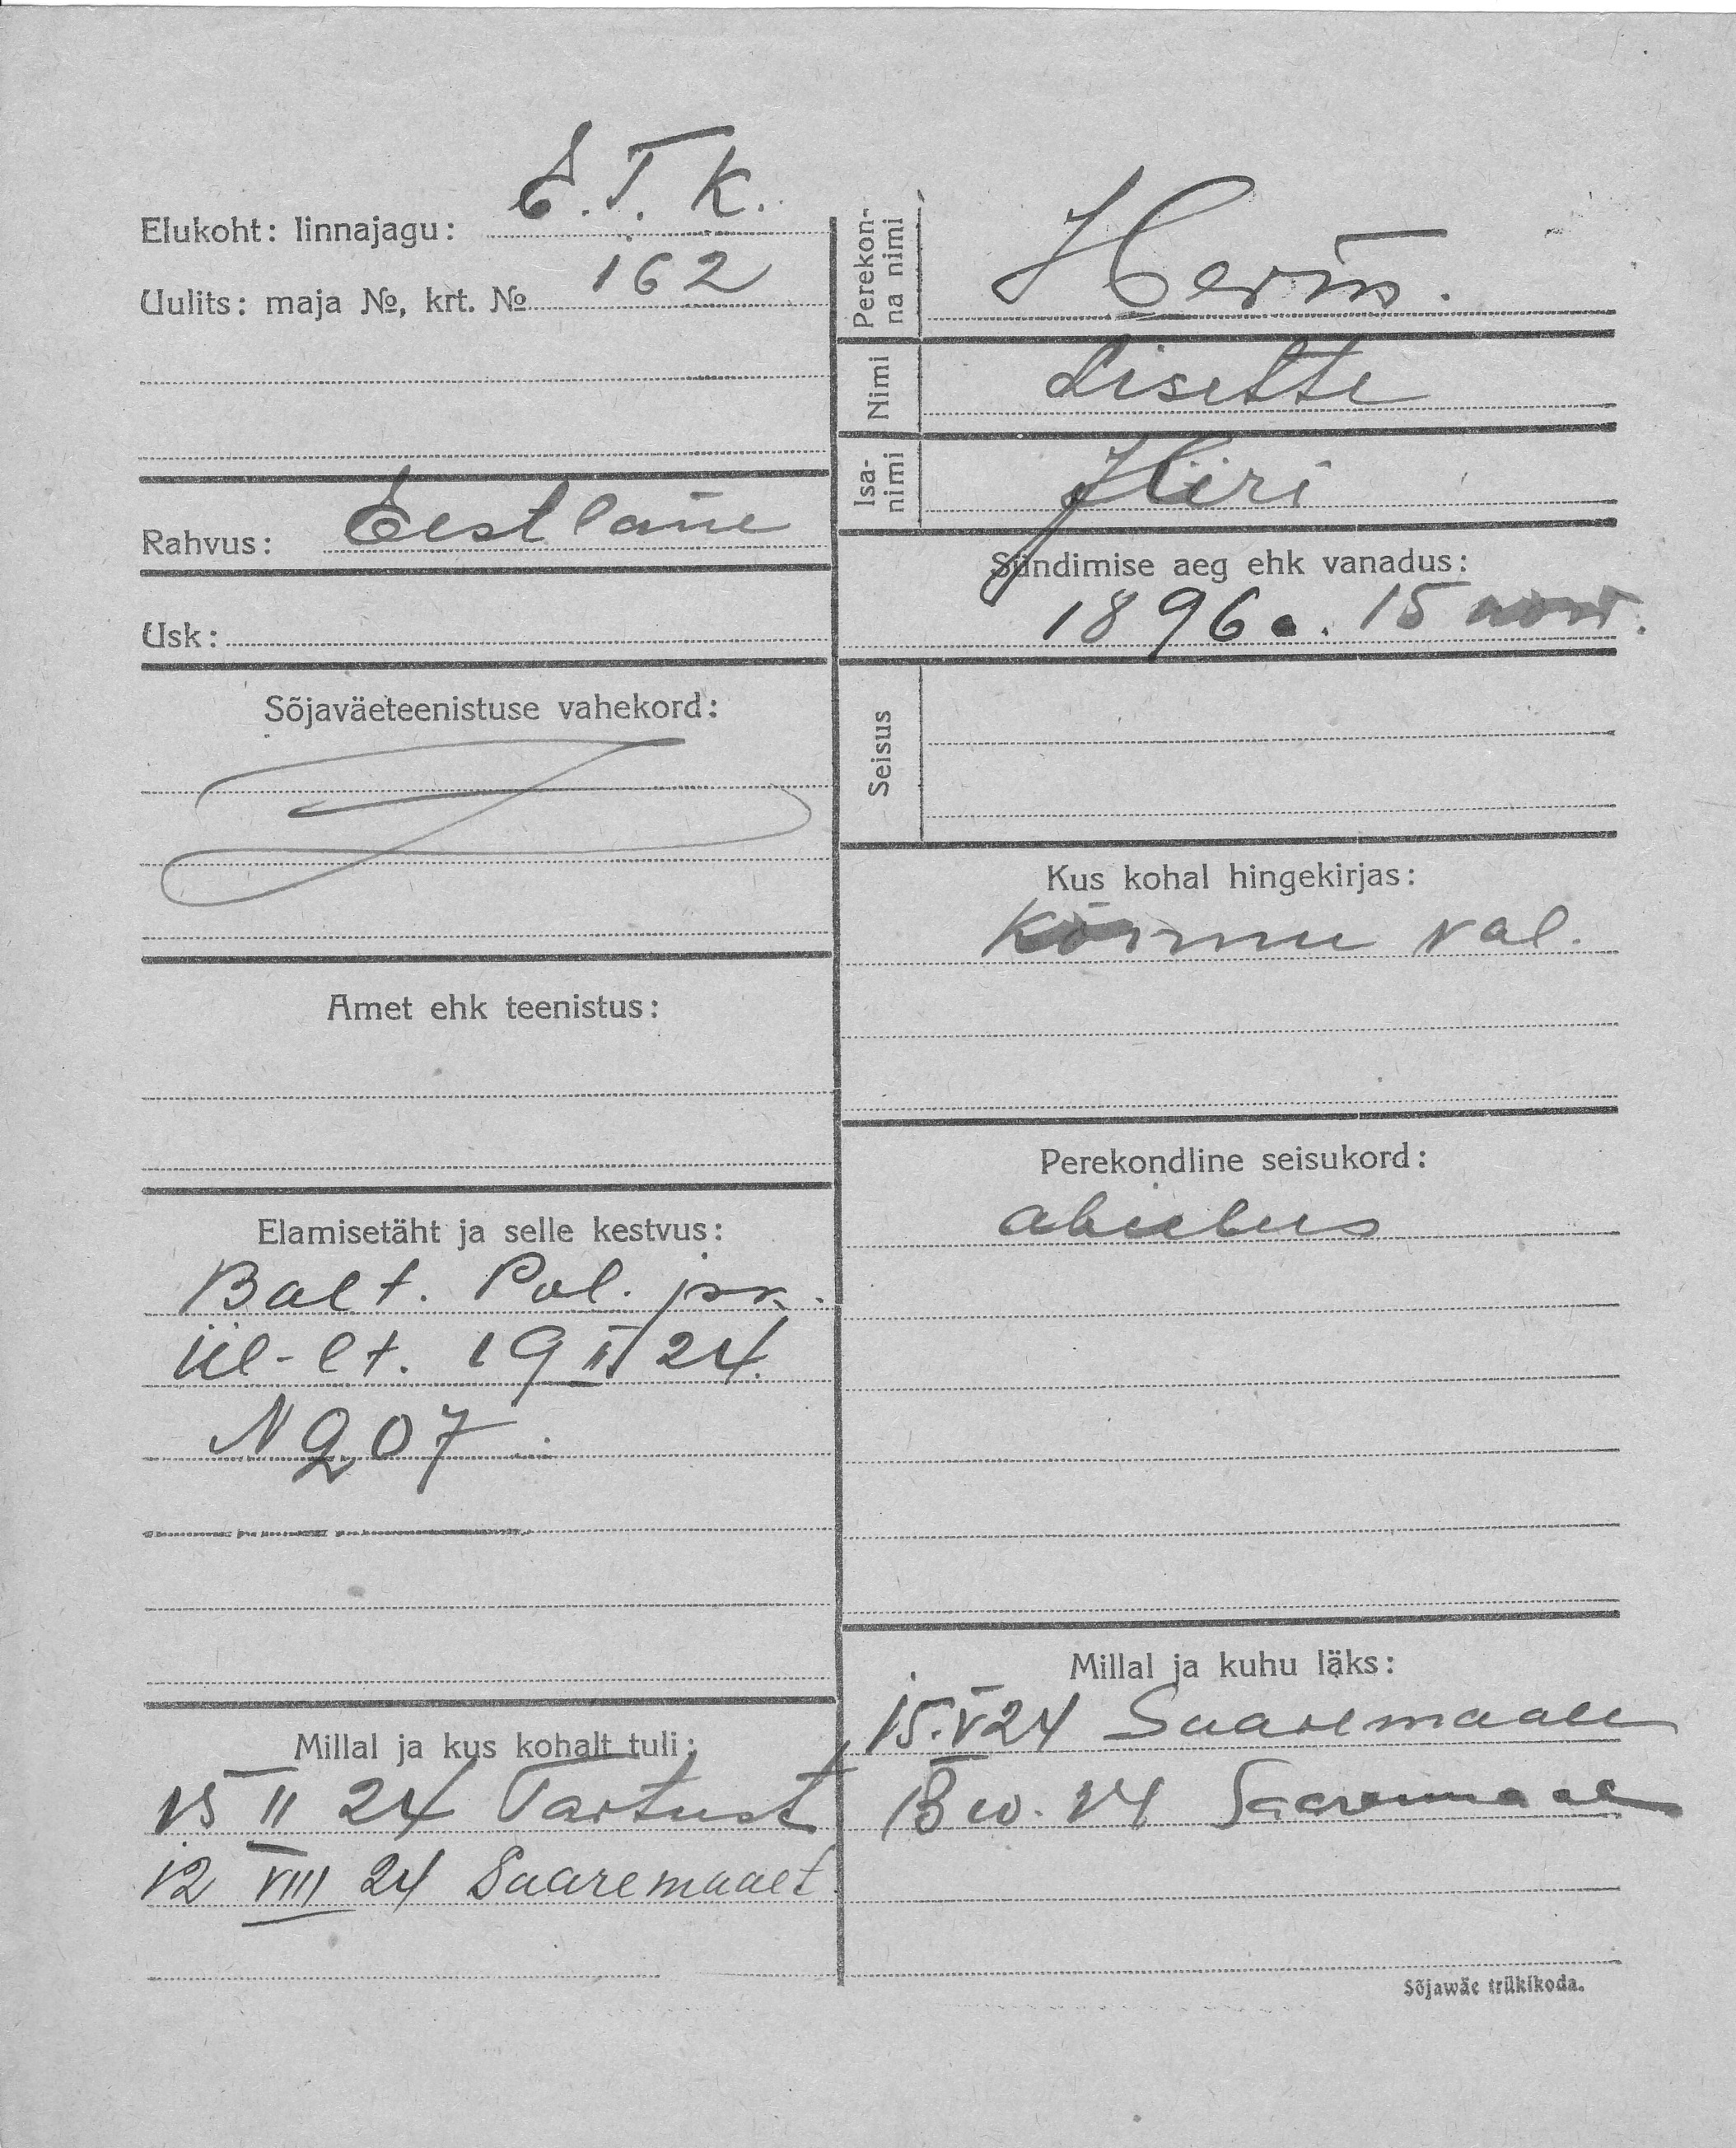 Elukoht: linnajagu: E. T. K.
Uulits: maja №, krt. № 162
Rahvus: Eestlane
Usk:
Sõjaväeteenistuse vahekord:
Amet ehk teenistus:
Elamisetäht ja selle kestvus:
Balt. Pol. jsk.
Ül-et. 19 II 24.
N 207
Millal ja kus kohalt tuli:
15 II 24 Tartust
12 VIII 24 Saaremaalt
Perekon-
na nimi
Nimi Lisette
Isa-
nimi Jüri
Sündimise aeg ehk vanadus:
1896 a. 15
Seisus
Kus kohal hingekirjas:
val.
Perekondline seisukord:
abielus
Millal ja kuhu läks:
15.V 24 Saaremaale
24 Saaremaale
Sõjawäe trükikoda.